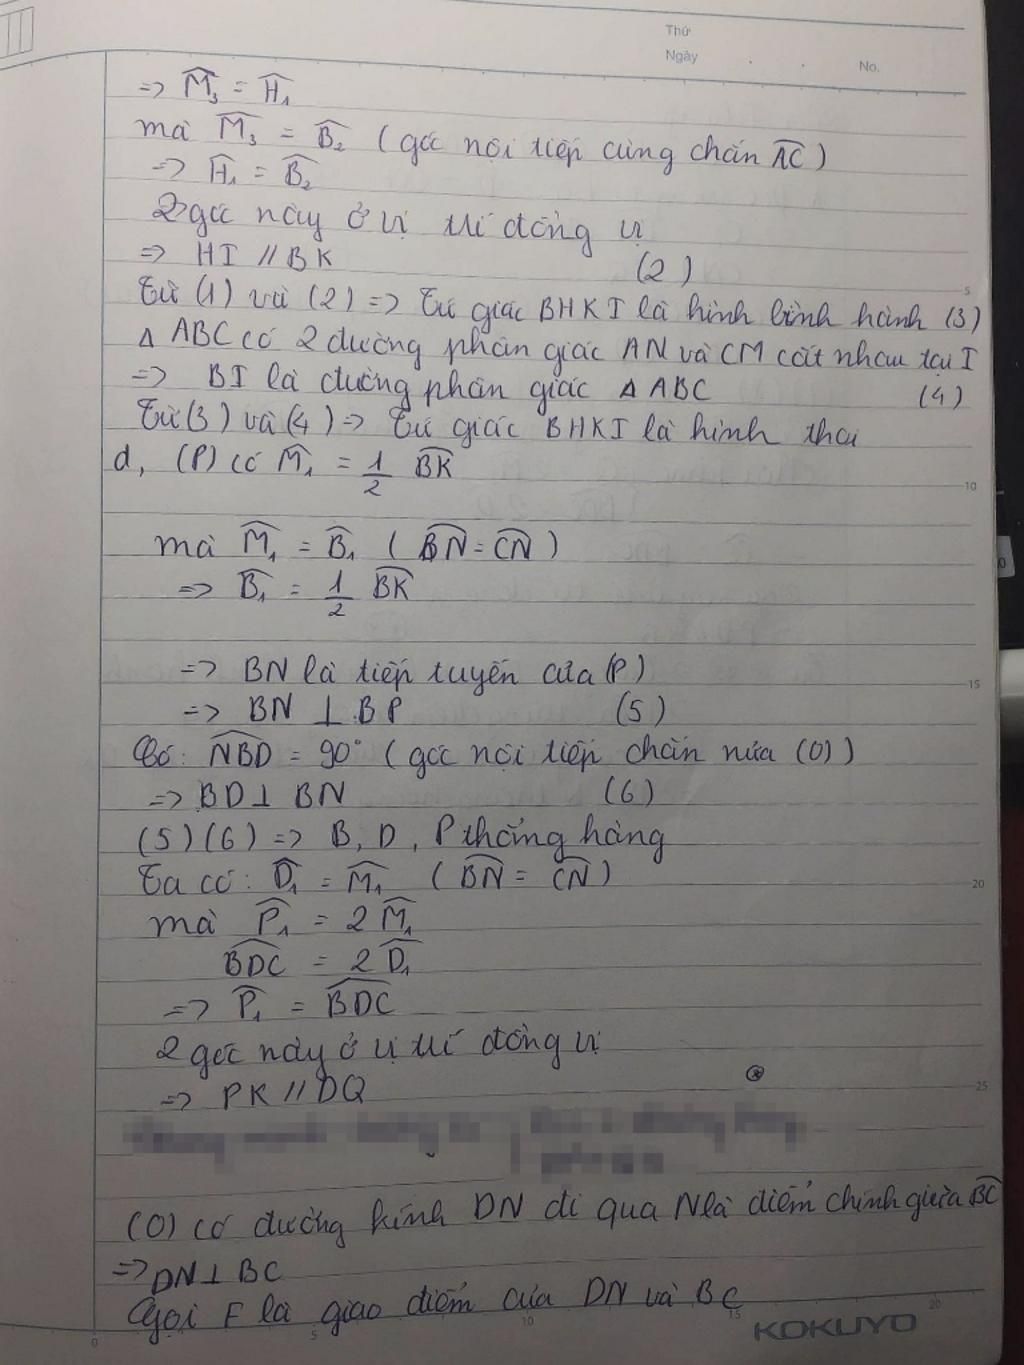 Thứ
Ngày
No.
=> M̂₃ = Ĥ₁
mà M̂₃ = B̂₂ (góc nội tiếp cùng chắn AC)
=> Ĥ₁ = B̂₂
2 góc này ở vị trí đồng vị
=> HI // BK (2)
Từ (1) và (2) => Tứ giác BHKI là hình bình hành (3)
Δ ABC có 2 đường phân giác AN và CM cắt nhau tại I
=> BI là đường phân giác Δ ABC (4)
Từ (3) và (4) => Tứ giác BHKI là hình thoi
d, (P) có M̂₁ = 1/2 BK
mà M̂₁ = B̂₁ (BN = CN)
=> B̂₁ = 1/2 BK
=> BN là tiếp tuyến của (P)
=> BN ⊥ BP (5)
Có: NBD = 90° (góc nội tiếp chắn nửa (O))
=> BD ⊥ BN (6)
(5) (6) => B, D, P thẳng hàng
Ta có: D̂₁ = M̂₁ (BN = CN)
mà P̂₁ = 2 M̂₁
BDC = 2 D̂₁
=> P̂₁ = BDC
2 góc này ở vị trí đồng vị
=> PK // DQ
(O) có đường kính DN đi qua N là điểm chính giữa BC
=> DN ⊥ BC
Gọi F là giao điểm của DN và BC
KOKUYO